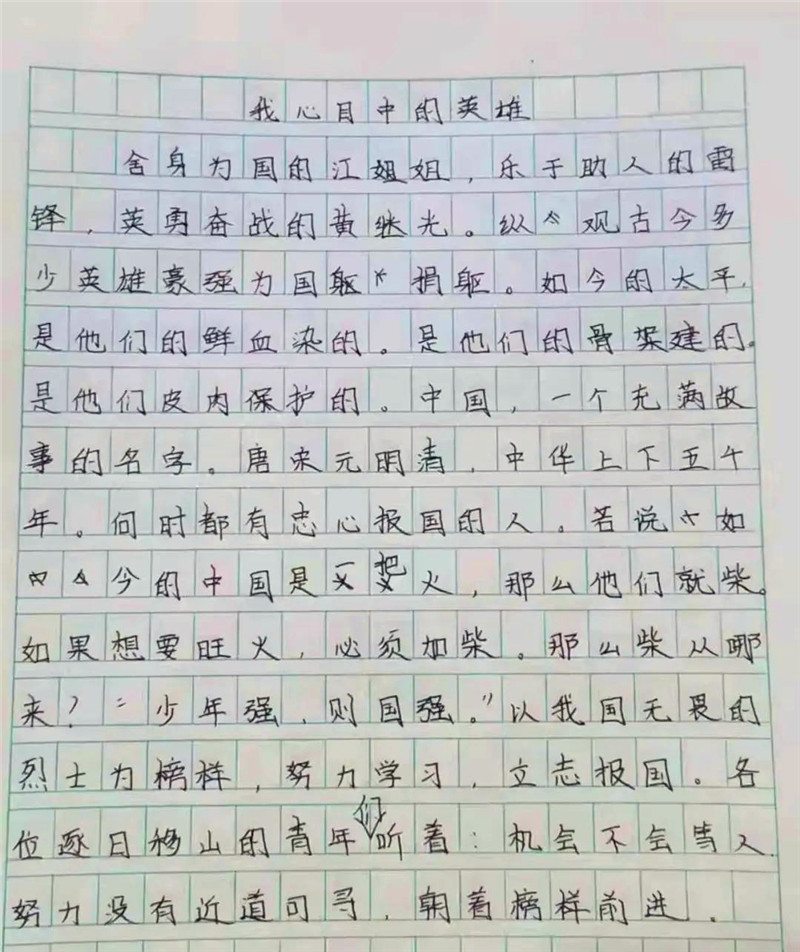 我心目中的英雄
舍身为国的江姐姐，乐于助人的雷
锋，英勇奋战的黄继光。纵观古今多
少英雄豪强为国躯捐躯。如今的太平，
是他们的鲜血染的。是他们的骨架建的。
是他们皮肉保护的。中国，一个充满故
事的名字。唐宋元明清，中华上下五千
年。何时都有忠心报国的人。若说如
今的中国是一把火，那么他们就柴。
如果想要旺火，必须加柴。那么柴从哪
来？“少年强，则国强。”以我国无畏的
烈士为榜样，努力学习，立志报国。各
位逐日移山的青年们听着：机会不会等人
努力没有近道可寻，朝着榜样前进。